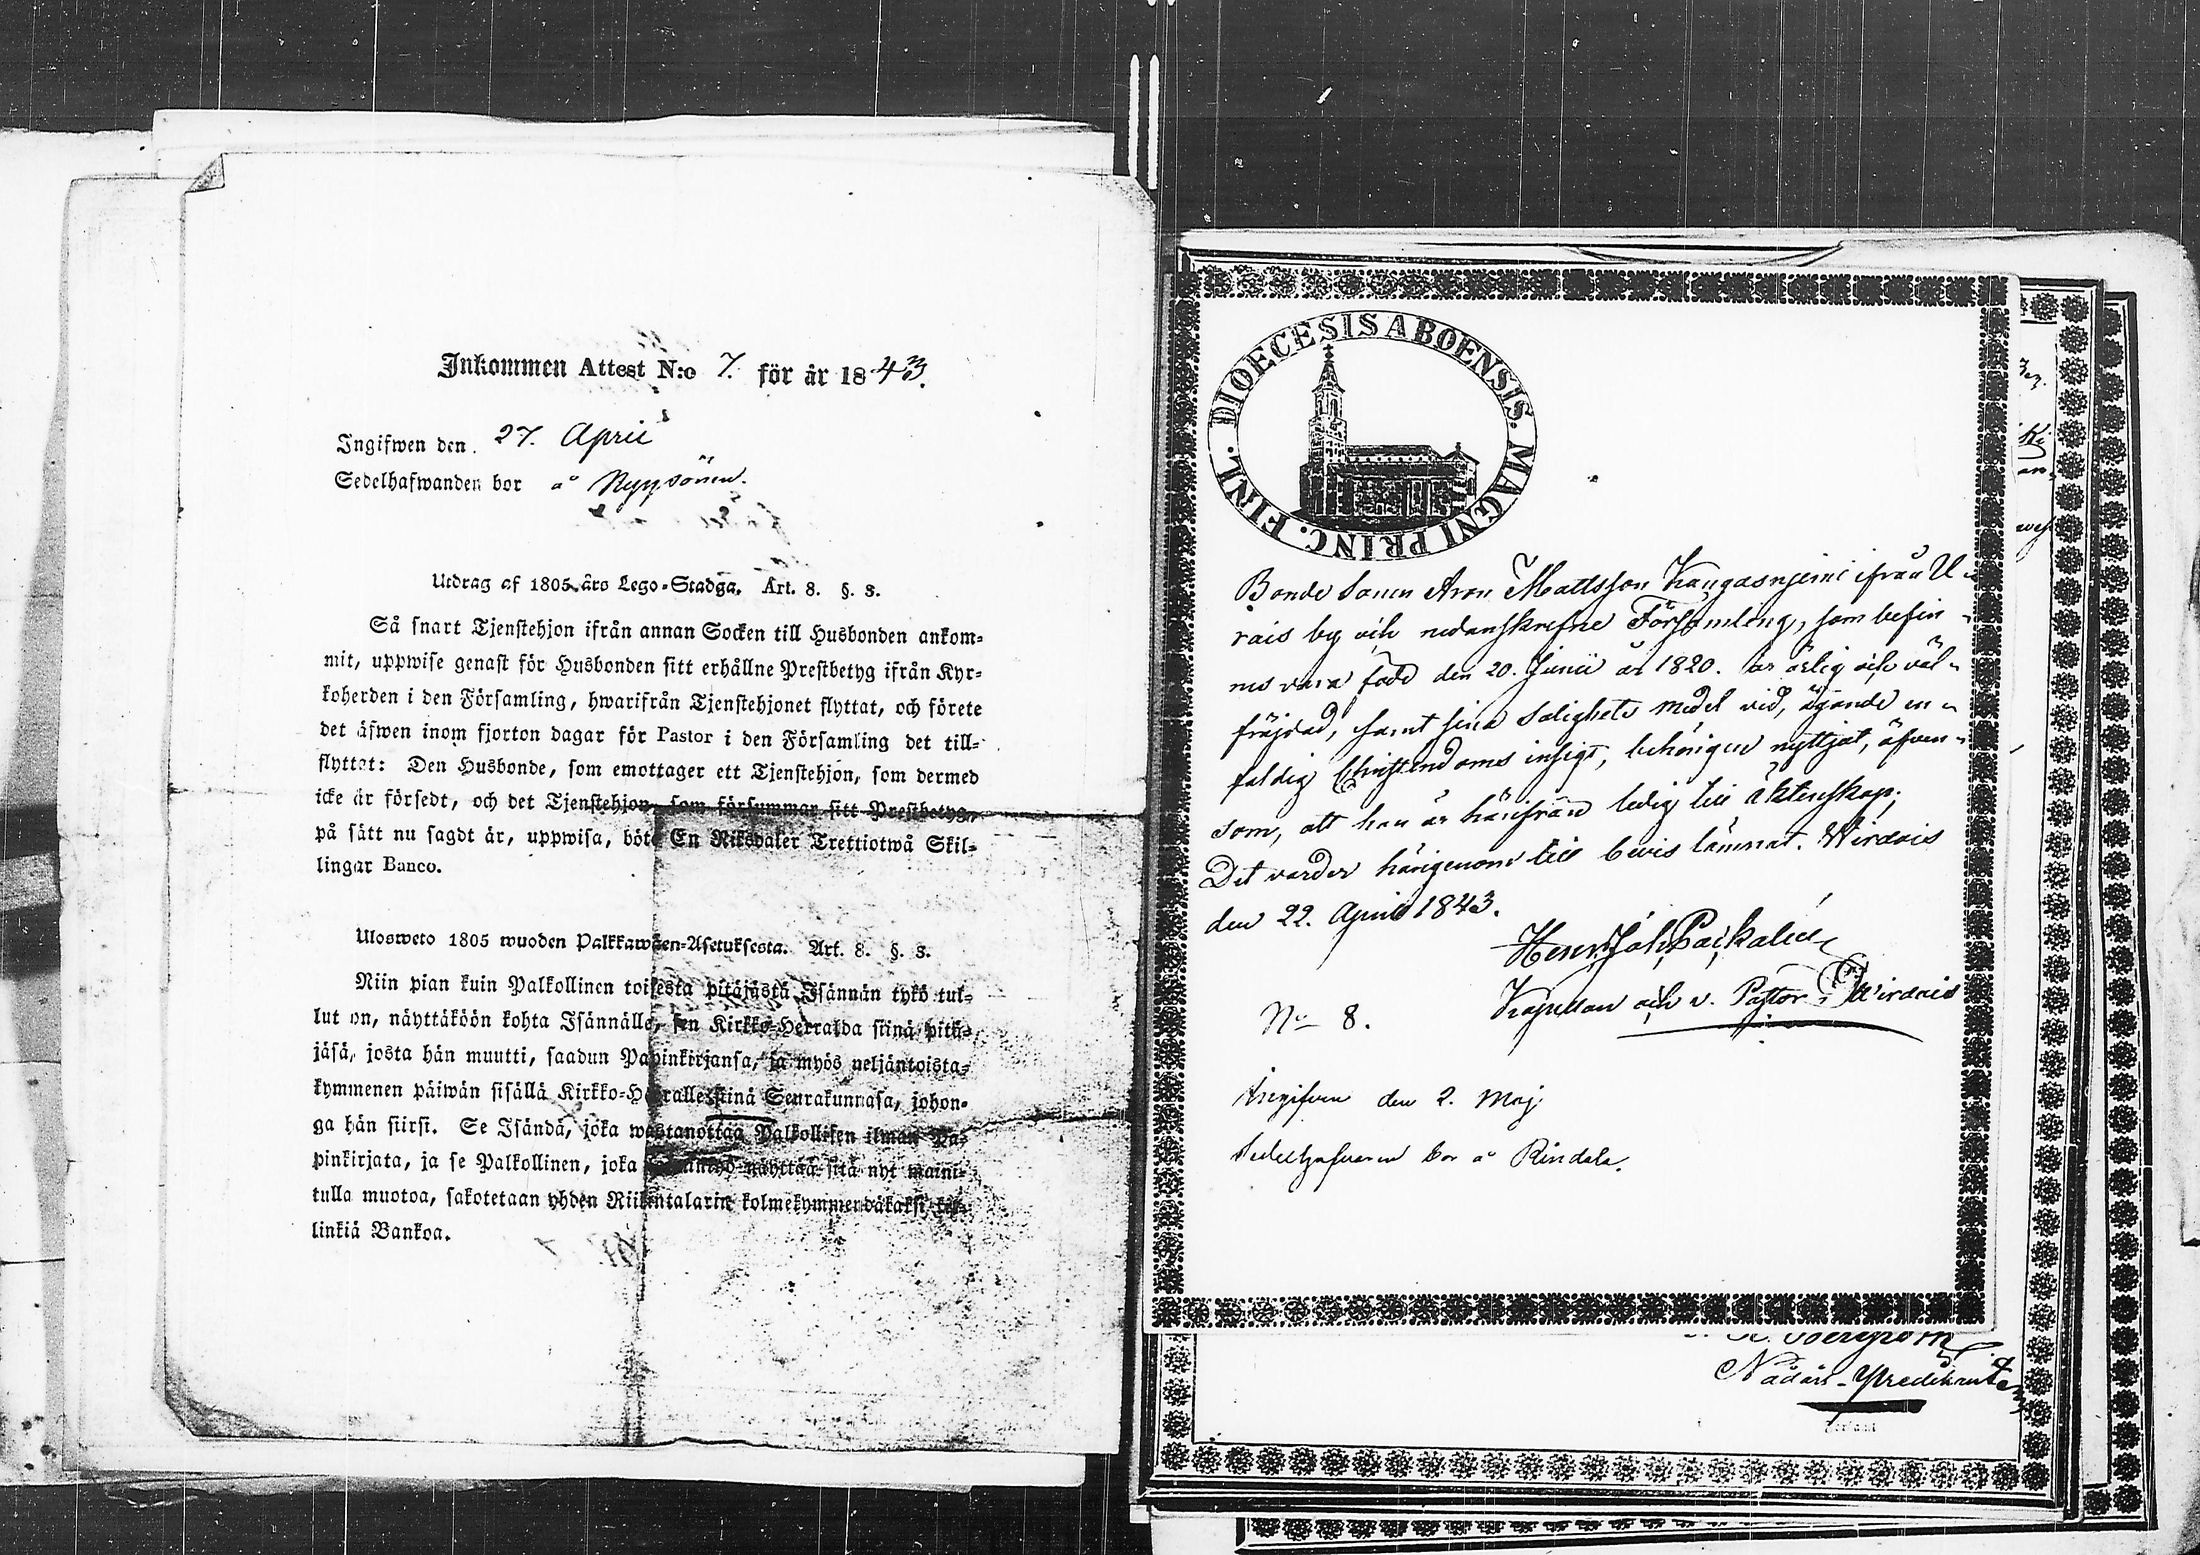 Inkommen Attest N:o 7. för år 1843.
Ingifwen den 27. April
Sedelhafwanden bor å Nyysönen.
Utdrag af 1805 års Lego-Stadga. Art. 8. §. 3.
Så snart Tjenstehjon ifrån annan Socken till Husbonden ankom-
mit, uppwise genast för Husbonden sitt erhållne Prestbetyg ifrån Kyr-
koherden i den Församling, hwarifrån Tjenstehjonet flyttat, och förete
det äfwen inom fjorton dagar för Pastor i den Församling det till-
flyttat: Den Husbonde, som emottager ett Tjenstehjon, som dermed
icke är försedt, och det Tjenstehjon, som försummar sitt Prestbetyg,
på sätt nu sagdt är, uppwisa, böte En Riksdaler Trettiotwå Skil-
lingar Banco.
Ulosweto 1805 wuoden Palkkawäen-Asetuksesta. Art. 8. §. 3.
Niin pian kuin Palkollinen toisesta pitäjästä Isännän tykö tul-
lut on, näyttäköön kohta Isännälle, sen Kirkko-Herralda siinä pitä-
jäsä, josta hän muutti, saadun Papinkirjansa, ja myös neljäntoista-
kymmenen päiwän sisällä Kirkko-Herralle siinä Seurakunnasa, johon-
ga hän siirsi. Se Isändä, joka wastanottaa Palkollisen ilman Pa-
pinkirjata, ja se Palkollinen, joka näyttää sitä nyt maini-
tulla muotoa, sakotetaan yhden Riikintalarin kolmekymmendäkaksi kil-
linkiä Bankoa.
DIOECESIS ABOENSIS. MAGNI PRINC. FINL.
Bonde Sonen Aron Mattsson Kangasnjemi ifrån U-
rais by och nedanskrefne Församling, som befin-
nes vara född den 20. Junii år 1820. är ärlig och väl-
fräjdad, samt sina Salighets medel vid, ägande en-
faldig Christendoms insigt, behörigen nyttjat, äfven-
som, att han är härifrån ledig till äktenskap;
Det varder härigenom till bevis lämnat. Wirdois
den 22. April 1843.
Henr. Joh. Paikalén
Kapellan och v. Pastor i Wirdois
No 8.
Ingifven den 2. Maj.
Sedelhafvaren bor å Rindala.
Nådår-Predikanten